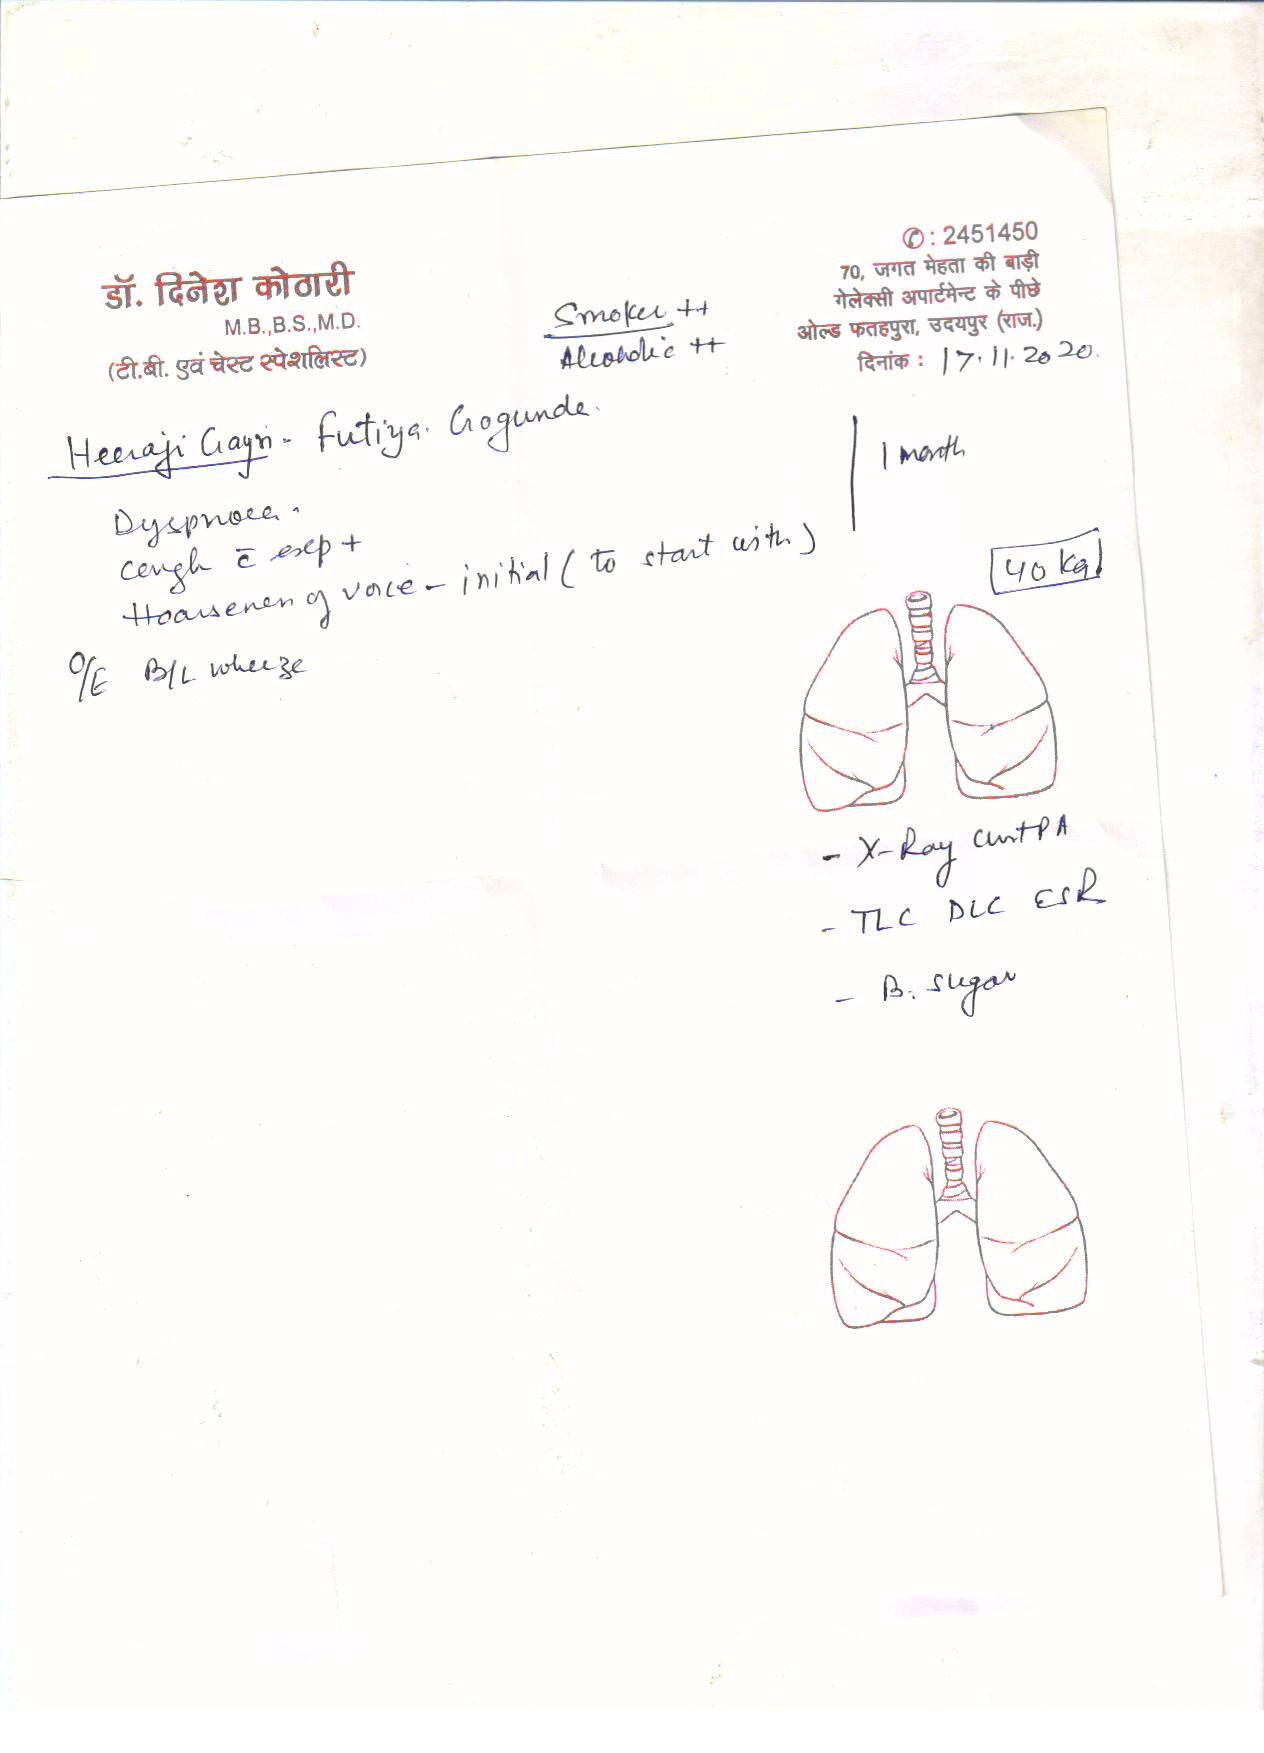 ✆ : 2451450
70, जगत मेहता की बाड़ी
गेलेक्सी अपार्टमेन्ट के पीछे
ओल्ड फतहपुरा, उदयपुर (राज.)
दिनांक : 17.11.2020.
डॉ. दिनेश कोठारी
M.B.,B.S.,M.D.
(टी.बी. एवं चेस्ट स्पेशलिस्ट)
Smoker ++
Alcoholic ++
Heeraji Gayri - Futiya. Gogunda.
1 month
Dyspnoea.
Cough c̄ exp +
Hoarseness of voice - initial ( to start with )
40 Kg
O/E B/L wheeze
- X-Ray Chest PA
- TLC DLC ESR
- B. Sugar